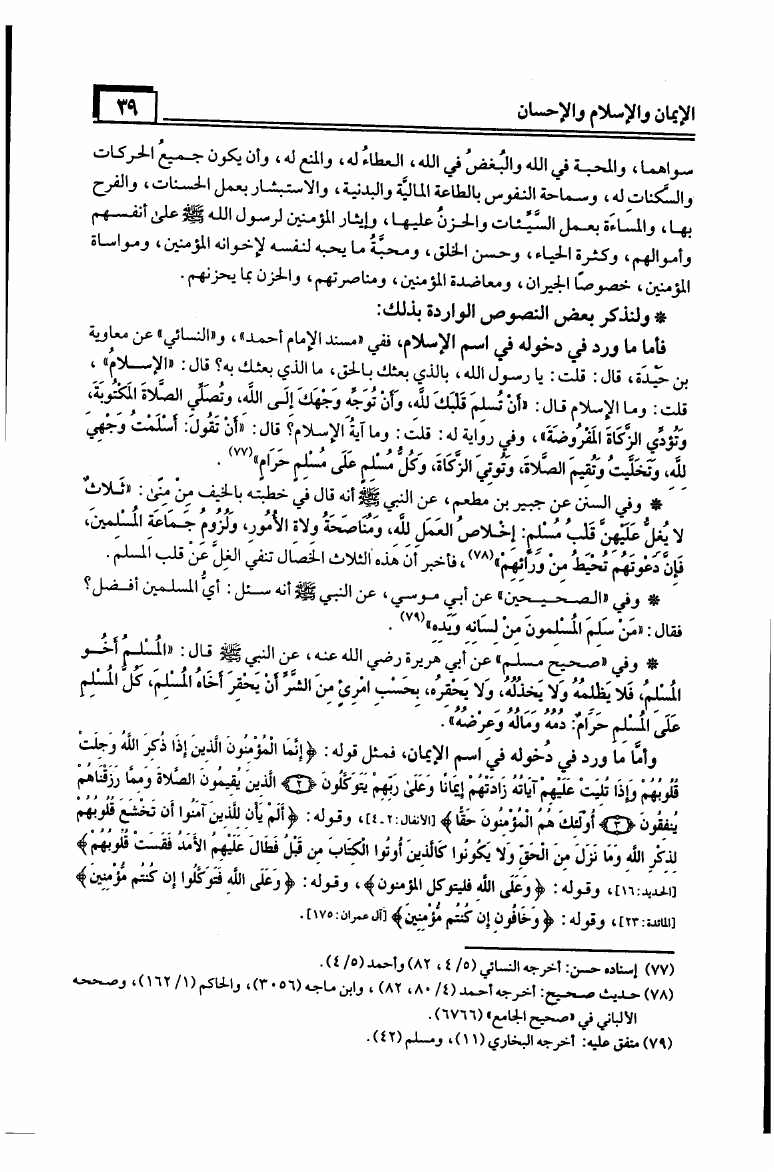 الإيمان والإسلام والإحسان
٣٩
سواهما، والمحبة في الله والبُغضُ في الله، العطاءُ له، والمنع له، وأن يكون جميعُ الحركات
والسَّكنات له، وسماحة النفوس بالطاعة الماليَّة والبدنية، والاستبشار بعمل الحسنات، والفرح
بها، والمساءَة بعمل السَّيِّئات والحزنُ عليها، وإيثار المؤمنين لرسول الله ﷺ على أنفسهم
وأموالهم، وكثرة الحياء، وحسن الخلق، ومحبَّةُ ما يحبه لنفسه لإخوانه المؤمنين، ومواساة
المؤمنين، خصوصًا الجيران، ومعاضدة المؤمنين، ومناصرتهم، والحزن بما يحزنهم.
* ولنذكر بعض النصوص الواردة بذلك:
فأما ما ورد في دخوله في اسم الإسلام، ففي «مسند الإمام أحمد»، و«النسائي» عن معاوية
بن حَيْدَة، قال: قلت: يا رسول الله، بالذي بعثك بالحق، ما الذي بعثك به؟ قال: «الإسلامُ»،
قلت: وما الإسلام قال: «أَنْ تُسلمَ قَلْبَكَ للَّه، وأَنْ تُوَجِّه وَجْهَكَ إلى اللَّه، وتُصَلِّي الصَّلاةَ المَكْتُوبَةَ،
وَتُؤدِّي الزَّكاةَ المَفْرُوضَةَ»، وفي رواية له: قلت: وما آيةُ الإسلام؟ قال: «أَنْ تَقُولَ: أَسْلَمْتُ وَجْهِيَ
للَّه، وَتَخَلَّيتُ وتُقيمَ الصَّلاةَ، وَتُوتِيَ الزَّكَاةَ، وَكُلُّ مُسْلمٍ عَلَى مُسْلِمٍ حَرَامٍ»(٧٧).
* وفي السنن عن جبير بن مطعم، عن النبي ﷺ أنه قال في خطبته بالخيف مِنْ مِنًى: «ثَلاثٌ
لا يُغلُّ عَلَيْهِنَّ قَلْبُ مُسْلمٍ: إخْلاصُ العَمَلِ للَّه، وَمُنَاصَحَةُ ولاة الأمُور، ولُزُومُ جَمَاعَة المُسْلمينَ،
فَإنَّ دَعْوتَهُمْ تُحيْطُ مِنْ وَرَائهِمْ»(٧٨)، فأخبر أن هذه الثلاث الخصال تنفي الغلَّ عَنْ قلب المسلم.
* وفي «الصحيحين» عن أبي موسي، عن النبي ﷺ أنه سئل: أيُّ المسلمين أفضل؟
فقال: «مَنْ سَلِمَ المُسْلِمونَ مِنْ لسَانِه وَيَدَه»(٧٩).
* وفي «صحيح مسلم» عن أبي هريرة رضي الله عنه، عن النبي ﷺ قال: «المُسْلِمُ أَخُو
المُسْلمُ، فَلا يَظْلِمُهُ وَلا يَخذلُهُ، وَلا يَحْقِرُه، بِحَسْبِ امْرِئٍ مِنَ الشَّرِّ أَنْ يَحْقِرَ أَخَاهُ المُسْلِمَ، كُلُّ المُسْلِمِ
عَلَى المُسْلِمِ حَرَامٌ: دَمُهُ وَمَالُهُ وَعِرْضُهُ».
وأمَّا ما ورد في دُخوله في اسم الإيمان، فمثل قوله: ﴿ إِنَّمَا الْمُؤْمِنُونَ الَّذِينَ إِذَا ذُكِرَ اللَّهُ وَجِلَتْ
قُلُوبُهُمْ وَإِذَا تُلِيَتْ عَلَيْهِمْ آيَاتُهُ زَادَتْهُمْ إِيمَانًا وَعَلَىٰ رَبِّهِمْ يَتَوَكَّلُونَ ﴿٢﴾ الَّذِينَ يُقِيمُونَ الصَّلاةَ وَمِمَّا رَزَقْنَاهُمْ
يُنفِقُونَ ﴿٣﴾ أُولَئِكَ هُمُ الْمُؤْمِنُونَ حَقًّا ﴾ [الأنفال:٢ـ٤]، وقوله: ﴿ أَلَمْ يَأْنِ لِلَّذِينَ آمَنُوا أَن تَخْشَعَ قُلُوبُهُمْ
لِذِكْرِ اللَّهِ وَمَا نَزَلَ مِنَ الْحَقِّ وَلا يَكُونُوا كَالَّذِينَ أُوتُوا الْكِتَابَ مِن قَبْلُ فَطَالَ عَلَيْهِمُ الأَمَدُ فَقَسَتْ قُلُوبُهُمْ ﴾
[الحديد:١٦]، وقوله: ﴿ وَعَلَى اللَّه فليتوكل المؤمنون ﴾، وقوله: ﴿ وَعَلَى اللَّهِ فَتَوَكَّلُوا إِن كُنتُم مُّؤْمِنِينَ ﴾
[المائدة:٢٣]، وقوله: ﴿ وَخَافُونِ إِن كُنتُم مُّؤْمِنِينَ ﴾ [آل عمران:١٧٥].
(٧٧) إسناده حسن: أخرجه النسائي (٥/ ٤، ٨٢) وأحمد (٥/ ٤).
(٧٨) حديث صحيح: أخرجه أحمد (٤/ ٨٠، ٨٢)، وابن ماجه (٣٠٥٦)، والحاكم (١/ ١٦٢)، وصححه
الألباني في «صحيح الجامع» (٦٧٦٦).
(٧٩) متفق عليه: أخرجه البخاري (١١)، ومسلم (٤٢).